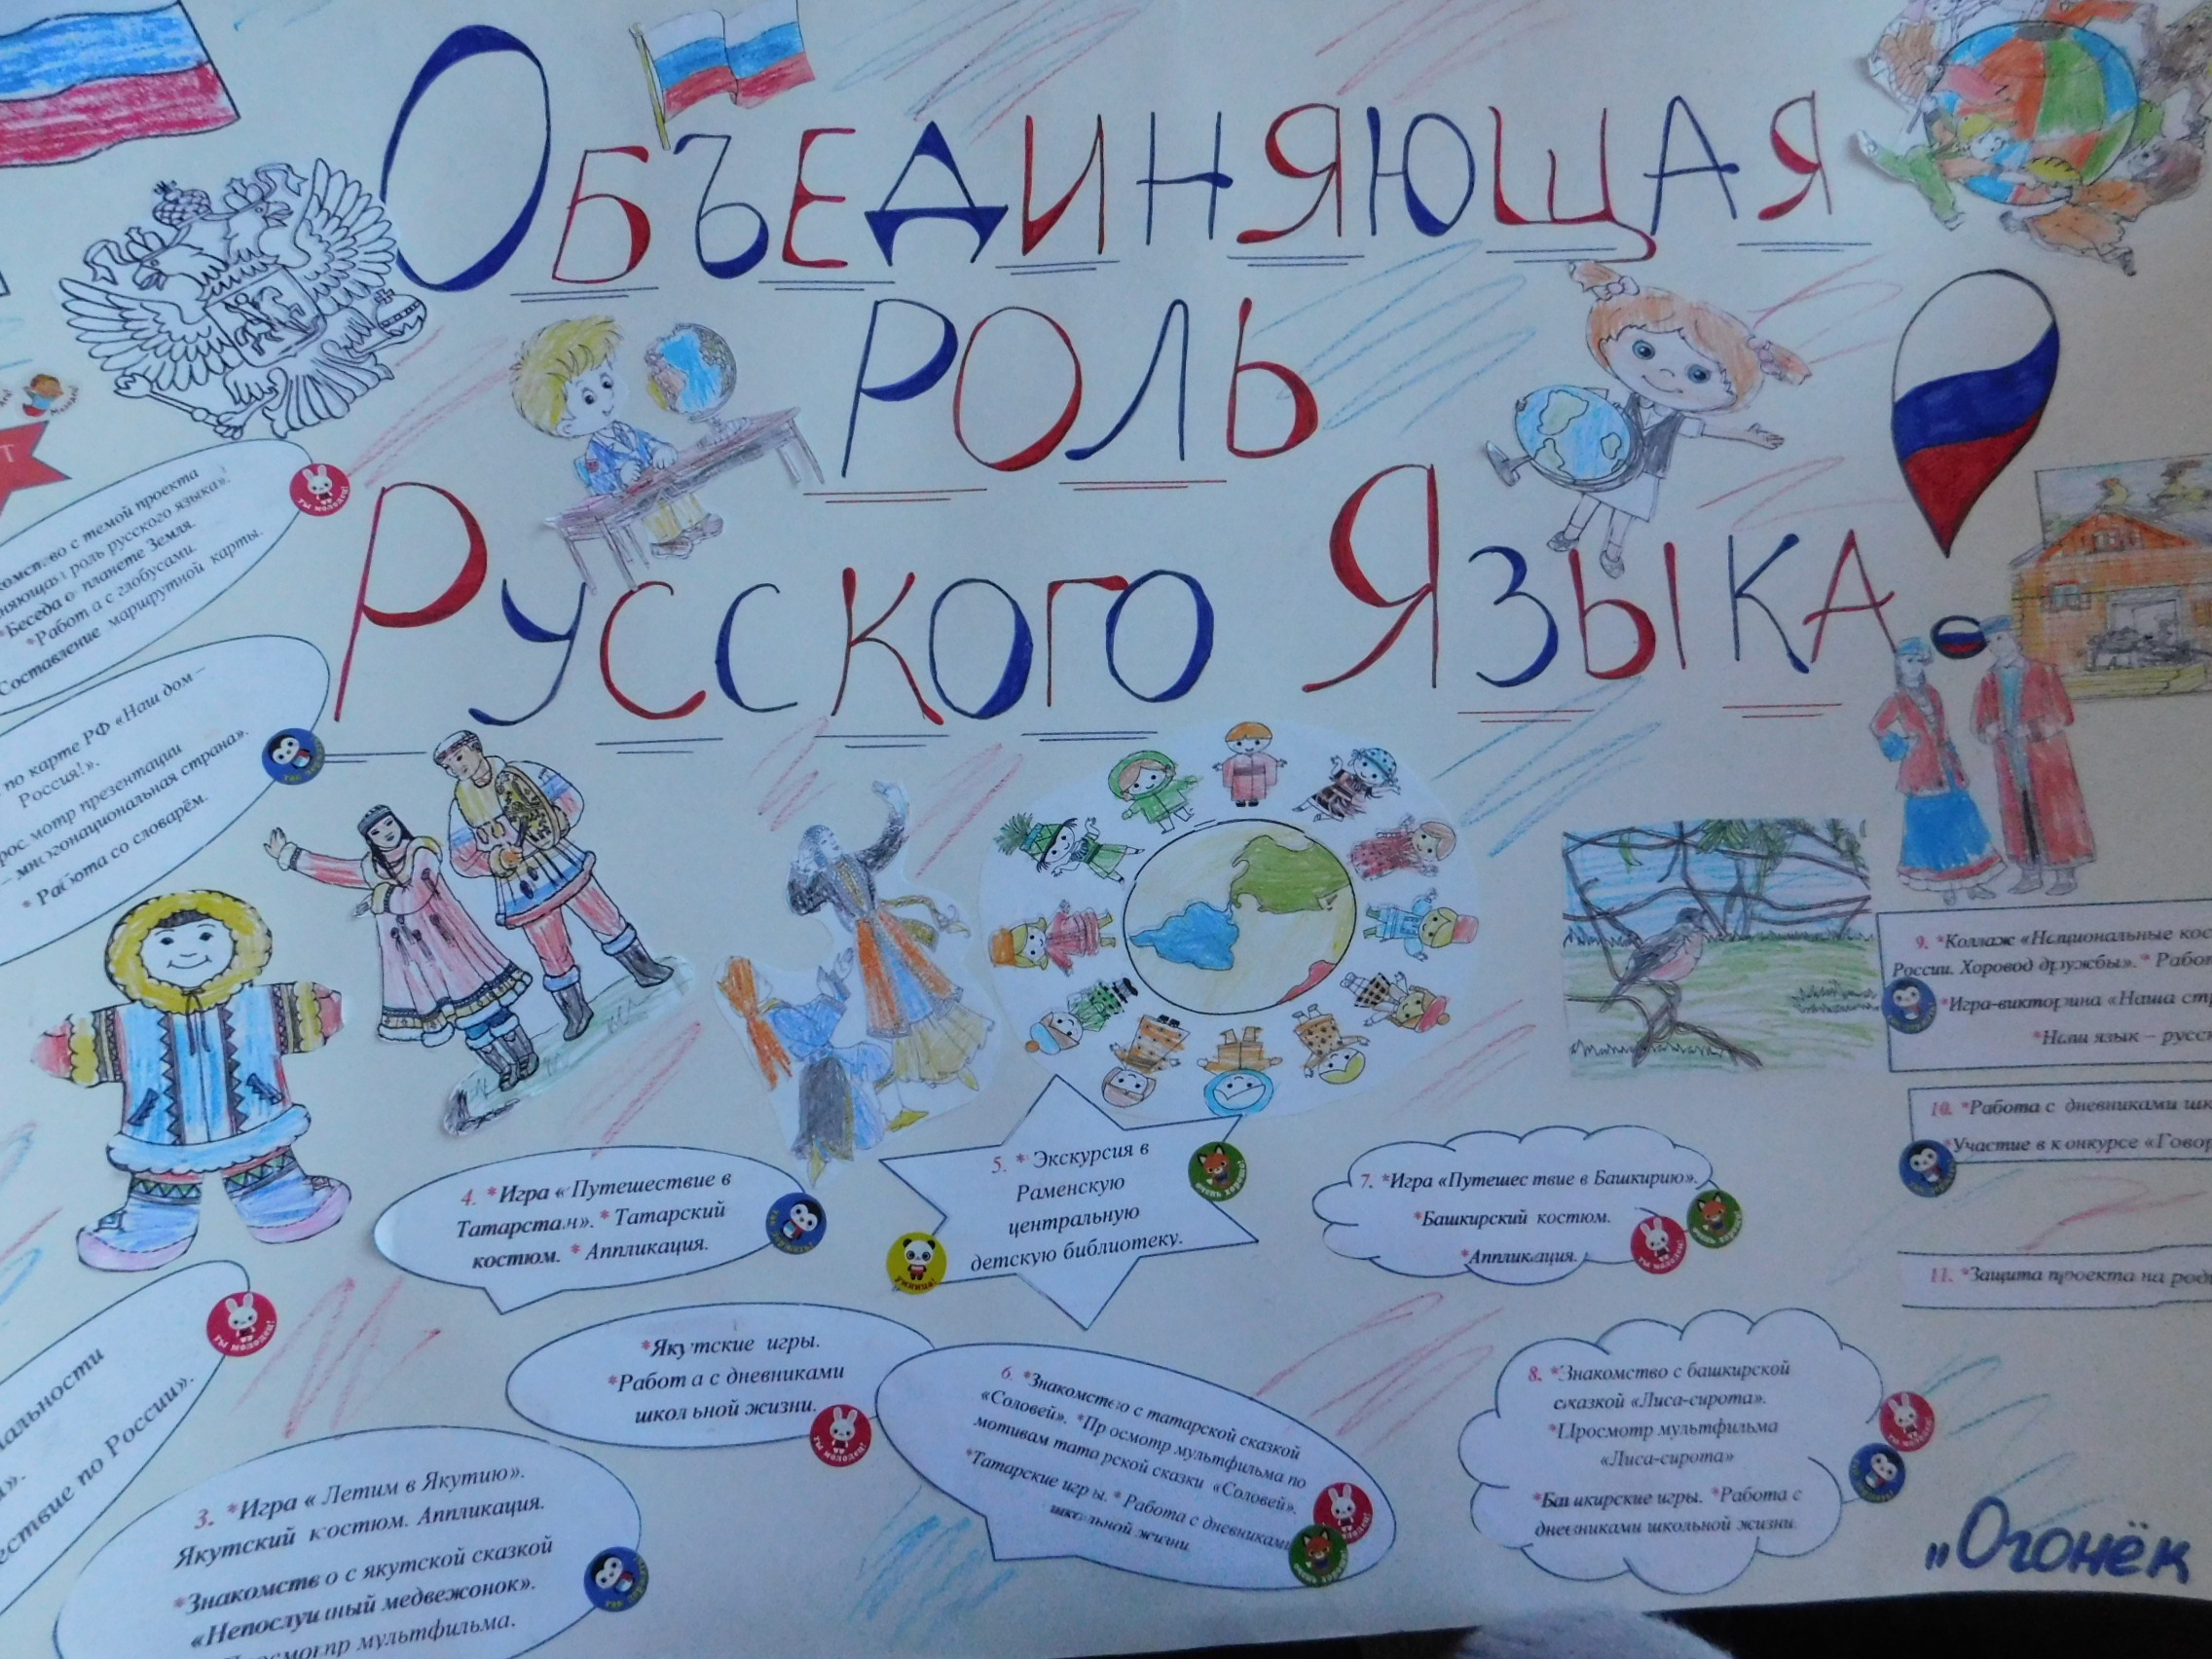 Объединяющая
роль
Русского Языка!
с темой проекта
роль русского языка».
*Беседа о планете Земля.
*Работа с глобусами.
Составление маршрутной карты.
по карте РФ «Наш дом –
Россия!».
мотр презентации
– многонациональная страна».
* Работа со словарём.
ествие по России».
3. *Игра « Летим в Якутию».
Якутский костюм. Аппликация.
*Знакомство с якутской сказкой
«Непослушный медвежонок».
Просмотр мультфильма.
*Якутские игры.
*Работа с дневниками
школьной жизни.
4. *Игра « Путешествие в
Татарстан». * Татарский
костюм. * Аппликация.
5. * Экскурсия в
Раменскую
центральную
детскую библиотеку.
6. *Знакомство с татарской сказкой
«Соловей». *Просмотр мультфильма по
мотивам татарской сказки «Соловей».
*Татарские игры. * Работа с дневниками
школьной жизни
7. *Игра «Путешествие в Башкирию».
*Башкирский костюм.
*Аппликация.
8. *Знакомство с башкирской
сказкой «Лиса-сирота».
*Просмотр мультфильма
«Лиса-сирота»
*Башкирские игры. *Работа с
дневниками школьной жизни.
9. *Коллаж «Национальные кос
России. Хоровод дружбы». * Рабо
*Игра-викторина «Наша стр
*Наш язык – русс
10. *Работа с дневниками шк
*Участие в конкурсе «Говор
11. *Защита проекта на род
ты молодец!
ты молодец!
Умница!
очень хорошо!
ты молодец!
ты молодец!
ты молодец!
очень хорошо!
ты молодец!
„Огонёк